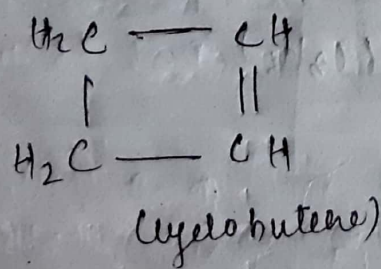 H2C — CH
| ||
H2C — CH
(cyclobutene)